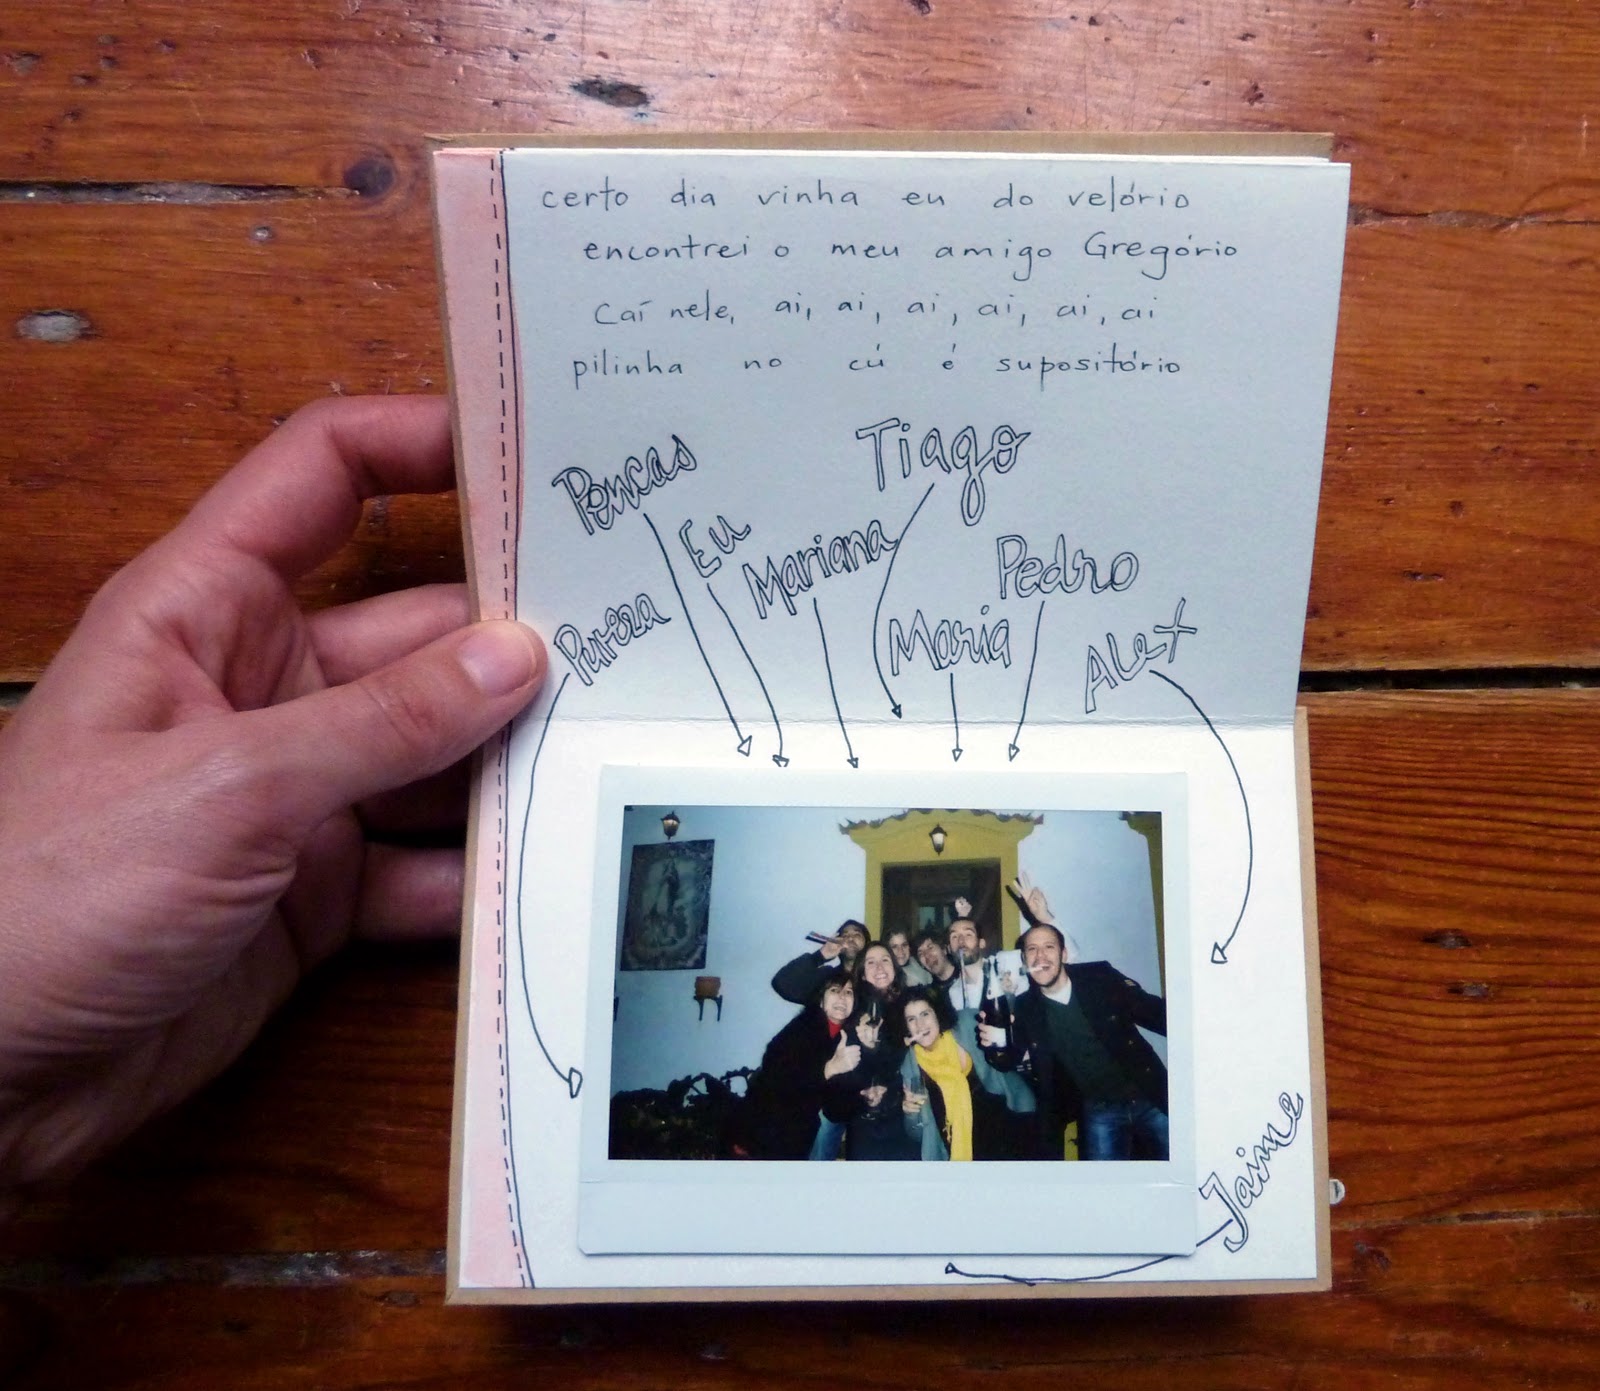 certo dia vinha eu do velório
encontrei o meu amigo Gregório
Caí nele, ai, ai, ai, ai, ai, ai
pilinha no cú é supositório
Tiago
Pencas
Eu
Mariana
Pedro
Maria
Pureza
Alex
Jaime